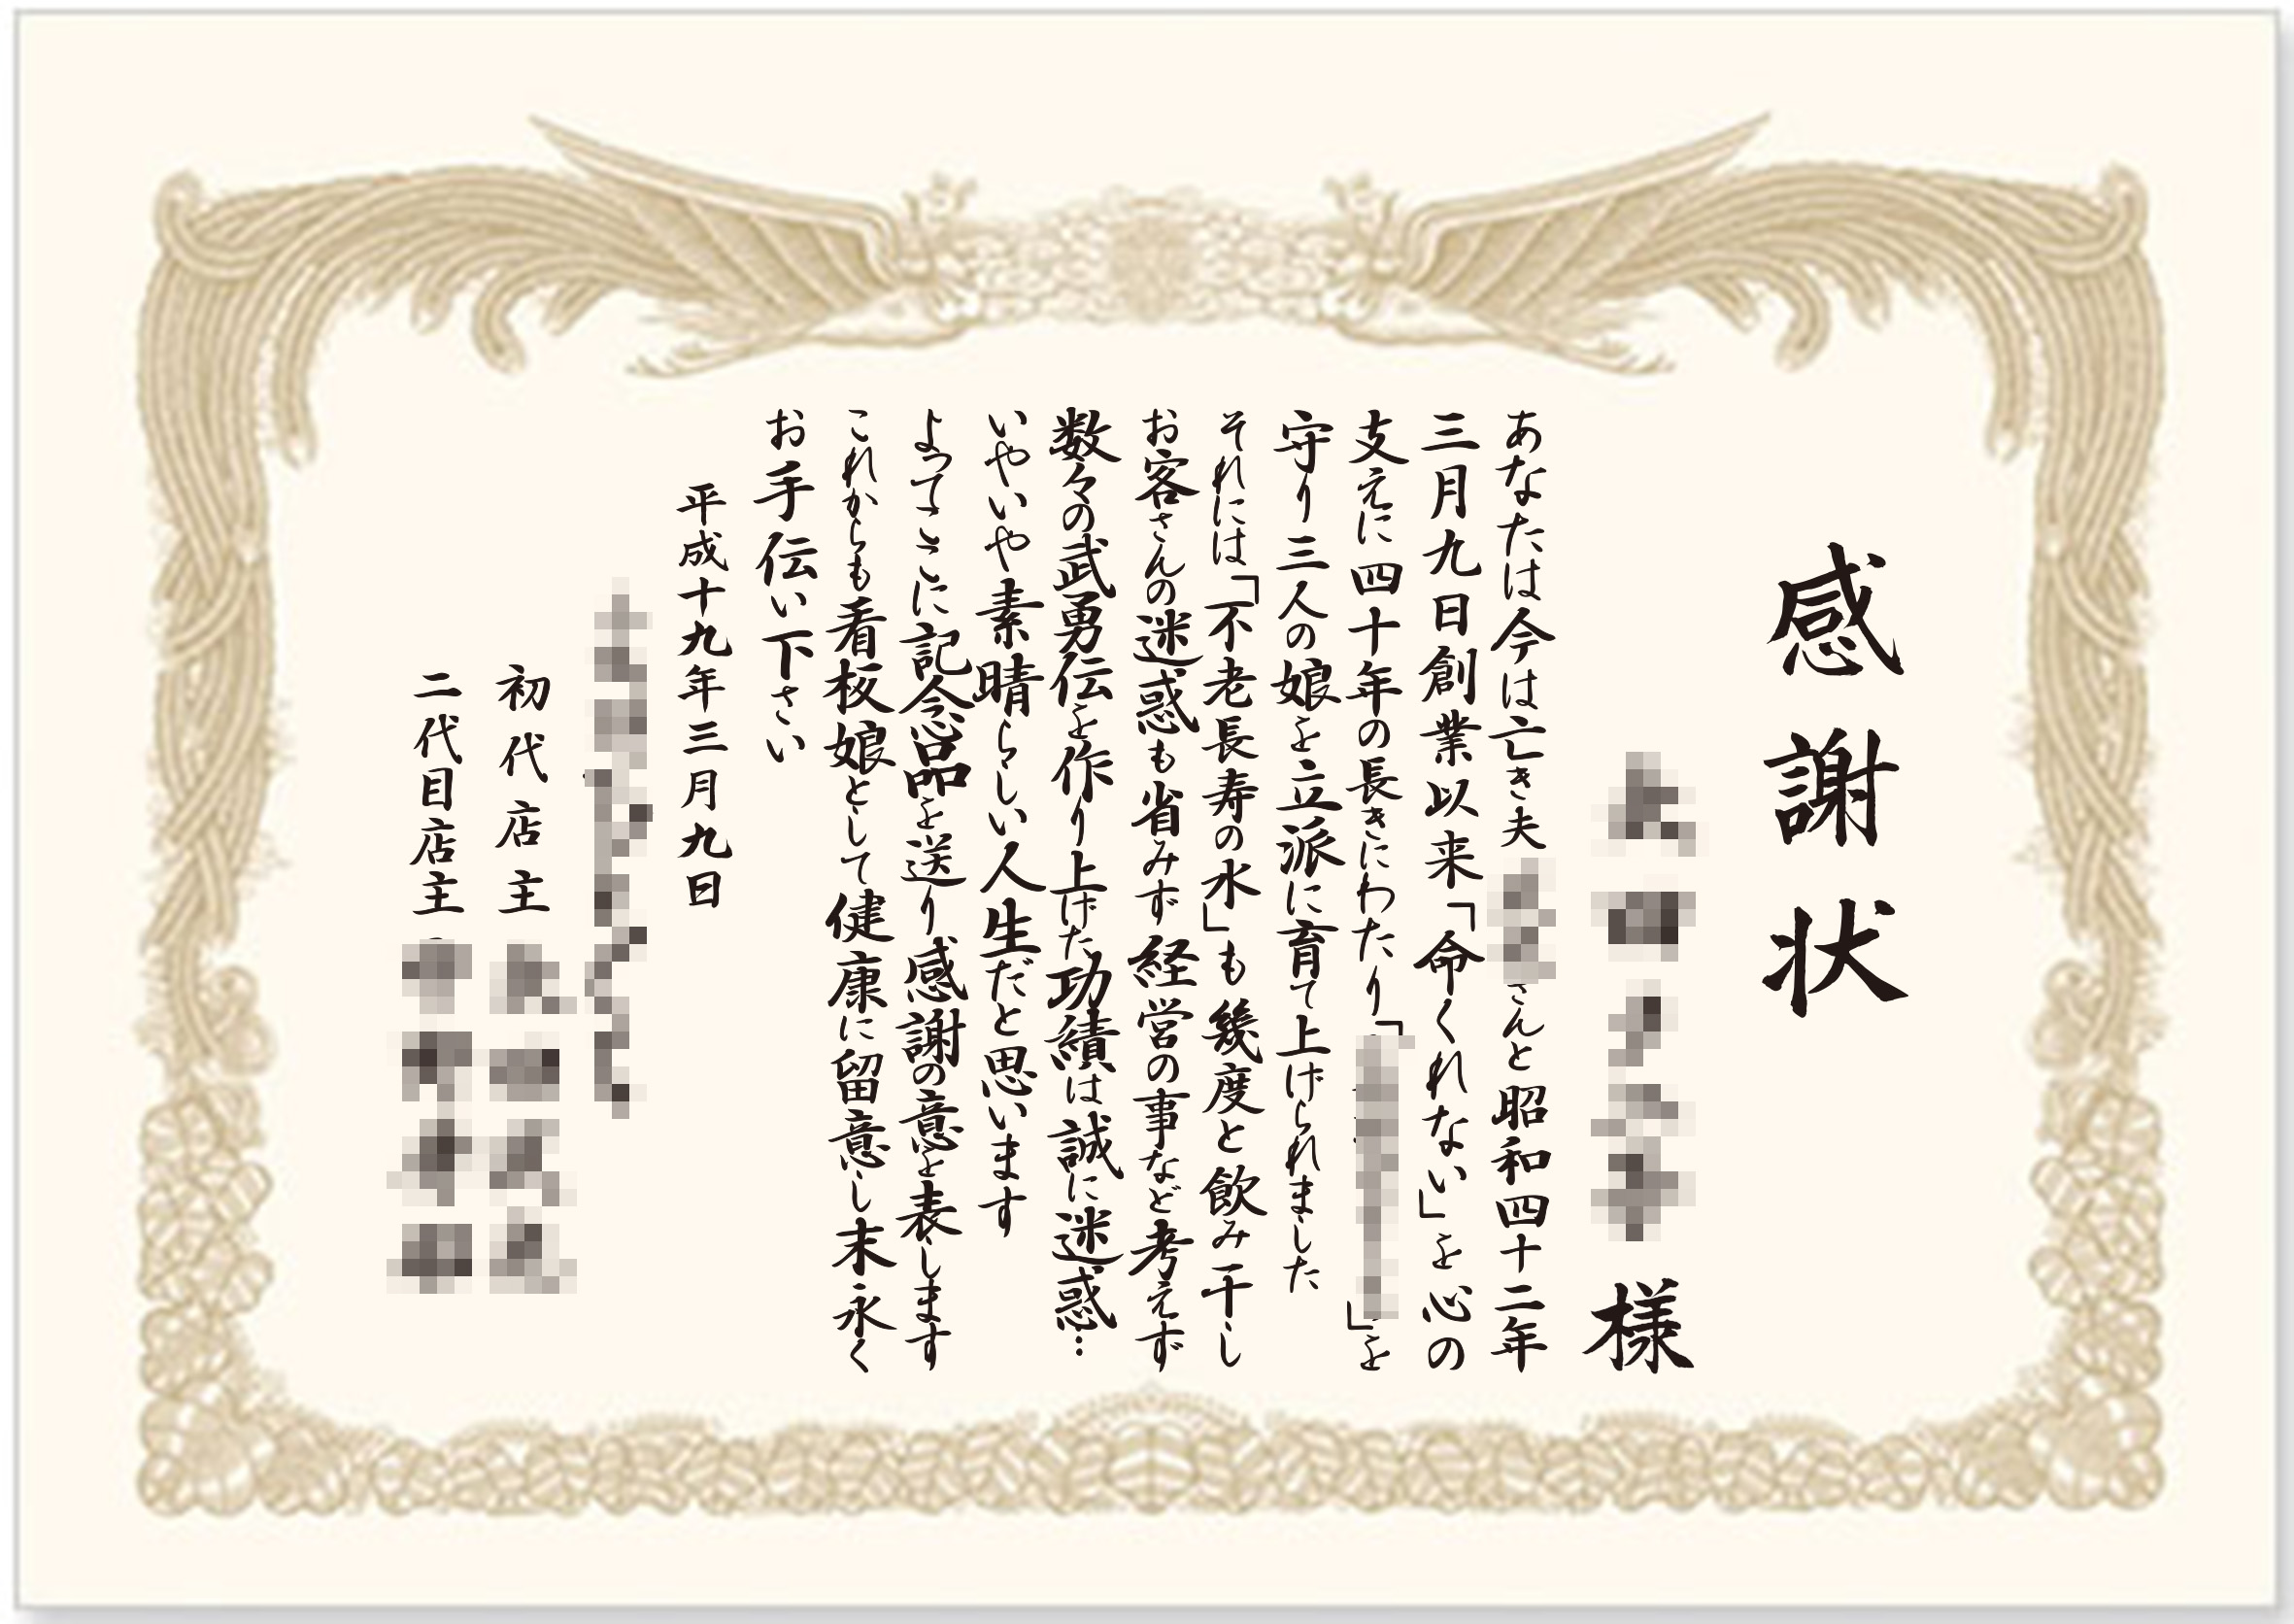 感謝状
様
あなたは今は亡き夫 さんと昭和四十二年
三月九日創業以来「命くれない」を心の
支えに四十年の長きにわたり「 」を
守り三人の娘を立派に育て上げられました
それには「不老長寿の水」も幾度と飲み干し
お客さんの迷惑も省みず経営の事など考えず
数々の武勇伝を作り上げた功績は誠に迷惑…
いやいや素晴らしい人生だと思います
よってここに記念品を送り感謝の意を表します
これからも看板娘として健康に留意し末永く
お手伝い下さい
平成十九年三月九日
初代店主
二代目店主